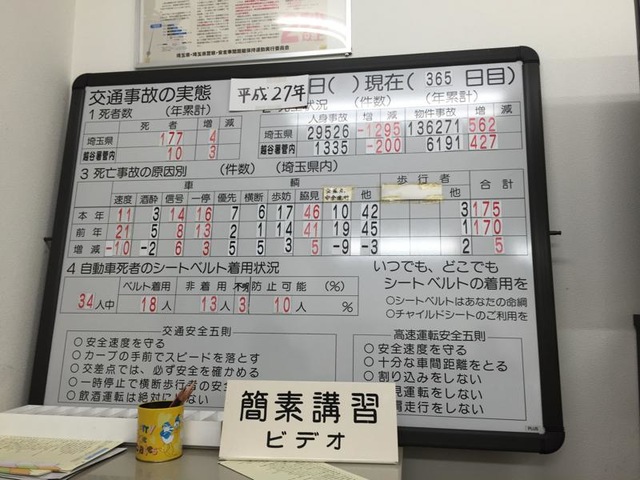 埼玉県・埼玉県警察・安全事間間隔保持運動実行委員会
交通事故の実態
平成27年
日( )現在( 365 日目)
1 死者数 (年累計)
状況 (件数) (年累計)
死者 増減
埼玉県 177 4
越谷署管内 10 3
人身事故 増減 物件事故 増減
埼玉県 29526 -1295 136271 562
越谷署管内 1335 -200 6191 427
3 死亡事故の原因別 (件数) (埼玉県内)
車輌 歩行者 合計
速度 酒酔 信号 一停 優先 横断 歩妨 脇見 他 他
本年 11 3 14 16 7 6 17 46 10 42 3 175
前年 21 5 8 13 2 1 14 41 19 45 1 170
増減 -10 -2 6 3 5 5 3 5 -9 -3 2 5
4 自動車死者のシートベルト着用状況
ベルト着用 非着用 不明 防止可能 (%)
34人中 18人 13人 3 10人 %
いつでも、どこでも
シートベルトの着用を
○シートベルトはあなたの命綱
○チャイルドシートのご利用を
交通安全五則
○安全速度を守る
○カーブの手前でスピードを落とす
○交差点では、必ず安全を確かめる
○一時停止で横断歩行者の安全
○飲酒運転は絶対に
高速運転安全五則
○安全速度を守る
○十分な車間距離をとる
○割り込みをしない
見運転をしない
走行をしない
簡素講習
ビデオ